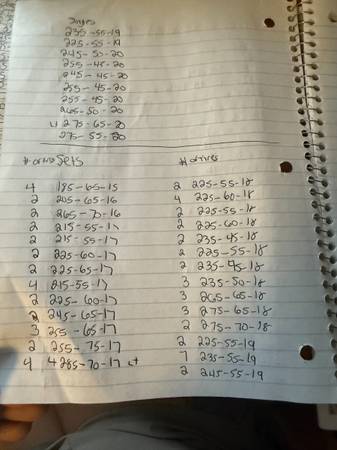 235-55-19
225-55-19
245-50-20
255-45-20
245-45-20
255-45-20
255-45-20
265-50-20
4 275-65-20
275-55-20
Sets
4 185-65-15
2 205-65-16
2 265-70-16
2 215-55-17
2 215-55-17
2 225-60-17
2 225-65-17
4 215-55-17
2 225-60-17
2 245-65-17
3 255-65-17
2 255-75-17
4 4285-70-17 LT
2 225-55-18
4 225-60-18
2 225-55-18
2 225-60-18
2 235-45-18
2 225-55-18
2 235-45-18
3 235-50-18
3 265-65-18
3 275-65-18
2 275-70-18
2 225-55-19
7 235-55-19
2 245-55-19